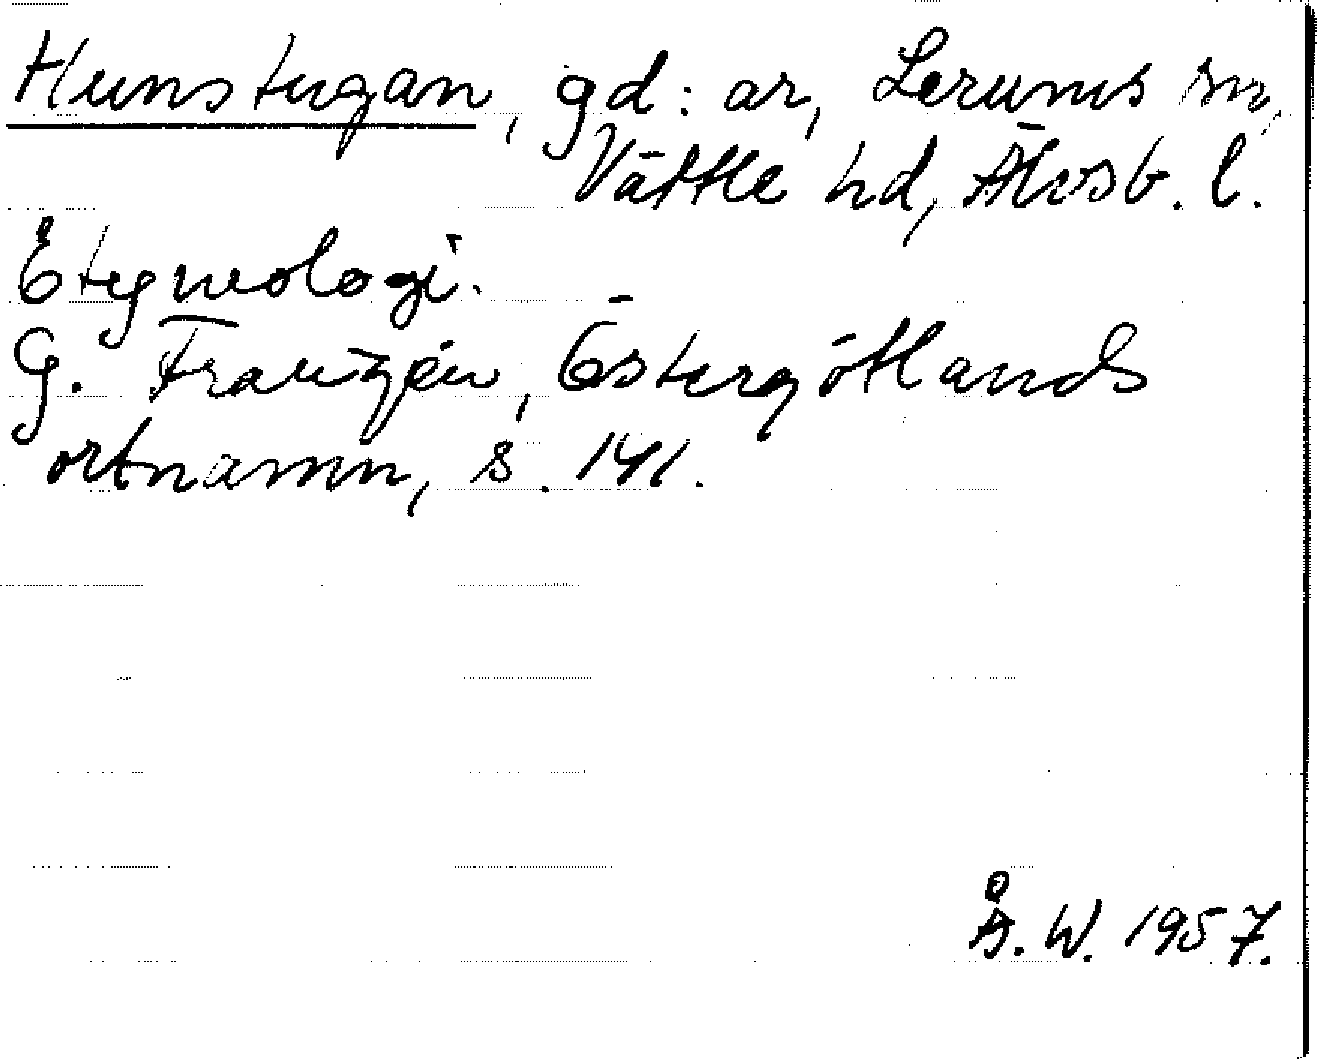 Hunstugan, gd:ar, Lerums sn,
Vättle hd, Älvsb. l.
Etymologi.
G. Franzén, Östergötlands
ortnamn, s. 141.
Å. W. 1957.